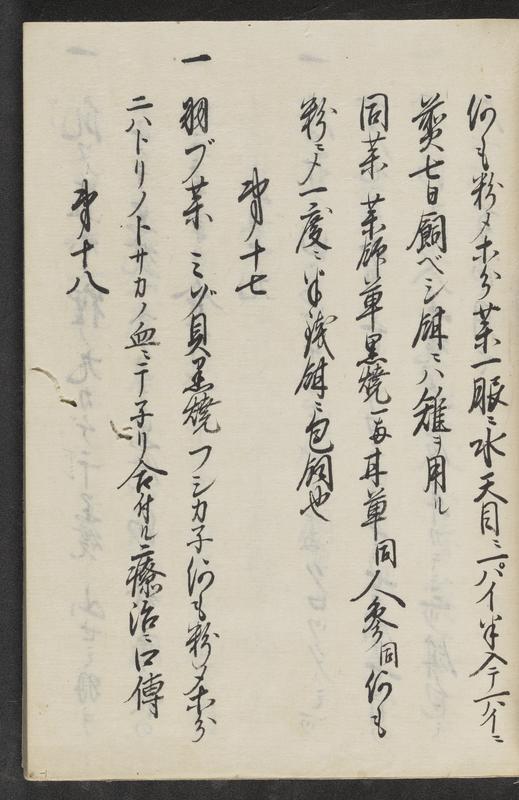 何も粉〆等分薬一服ニ水天目ニ一パイ半入テ一パイニ
煎七日飼ベシ餌ニハ雉ヲ用ル
同薬 薬師草黒焼一匁 甘草同 人参同 何も
粉ニ〆一度ニ半銭餌ニ包飼也
第ノ十七
一 羽ブ薬 ミゾ貝黒焼 フシカ子何も粉〆等分
ニハトリノトサカノ血ニテ子リ合付ル 療治ニ口傳
第ノ十八